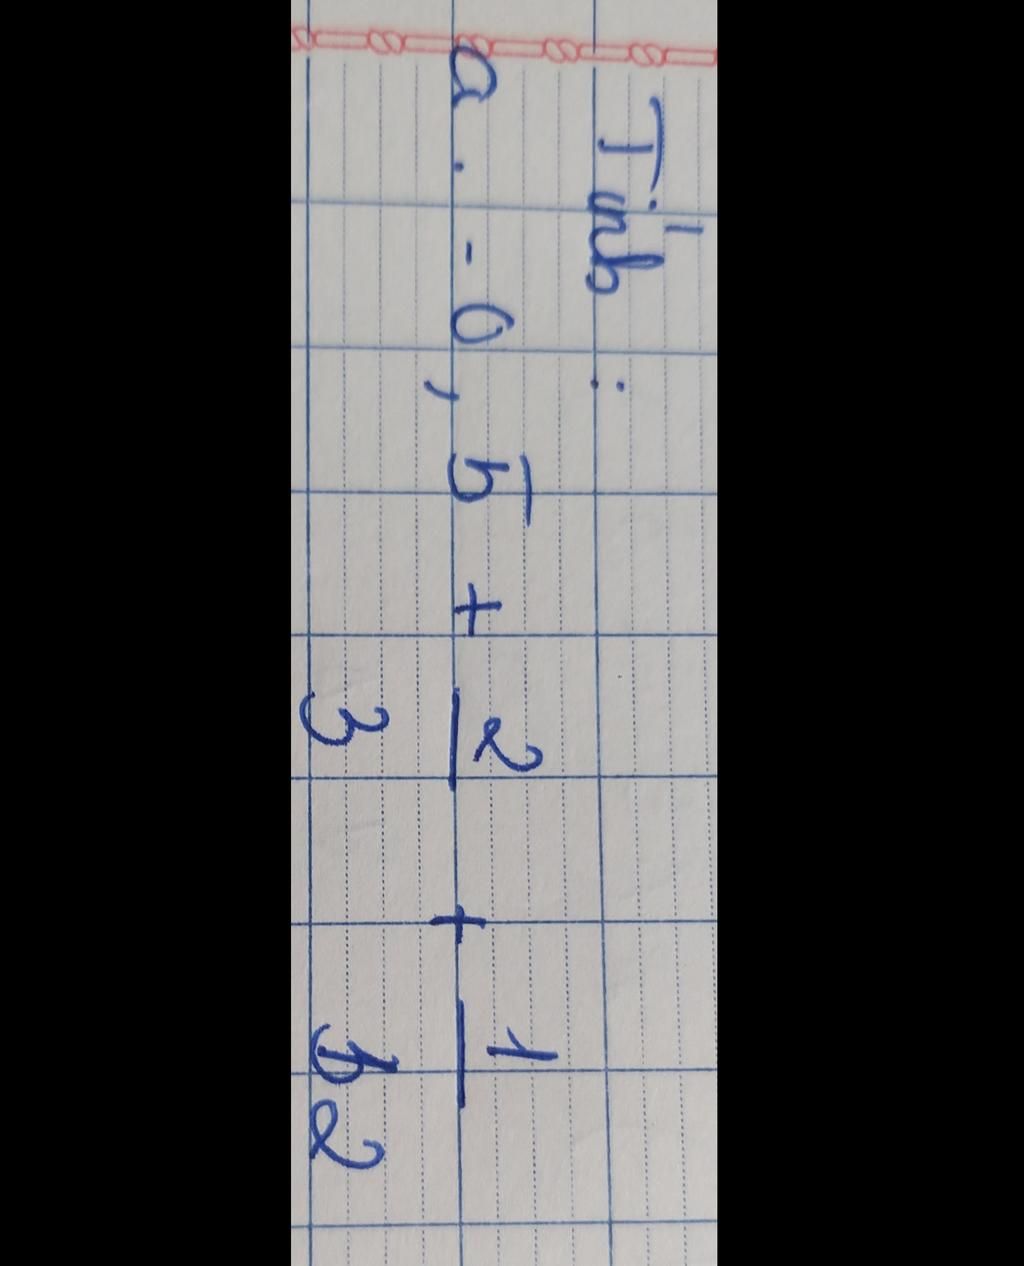 Tính :
a. -0,5 + 2/3 + 1/12